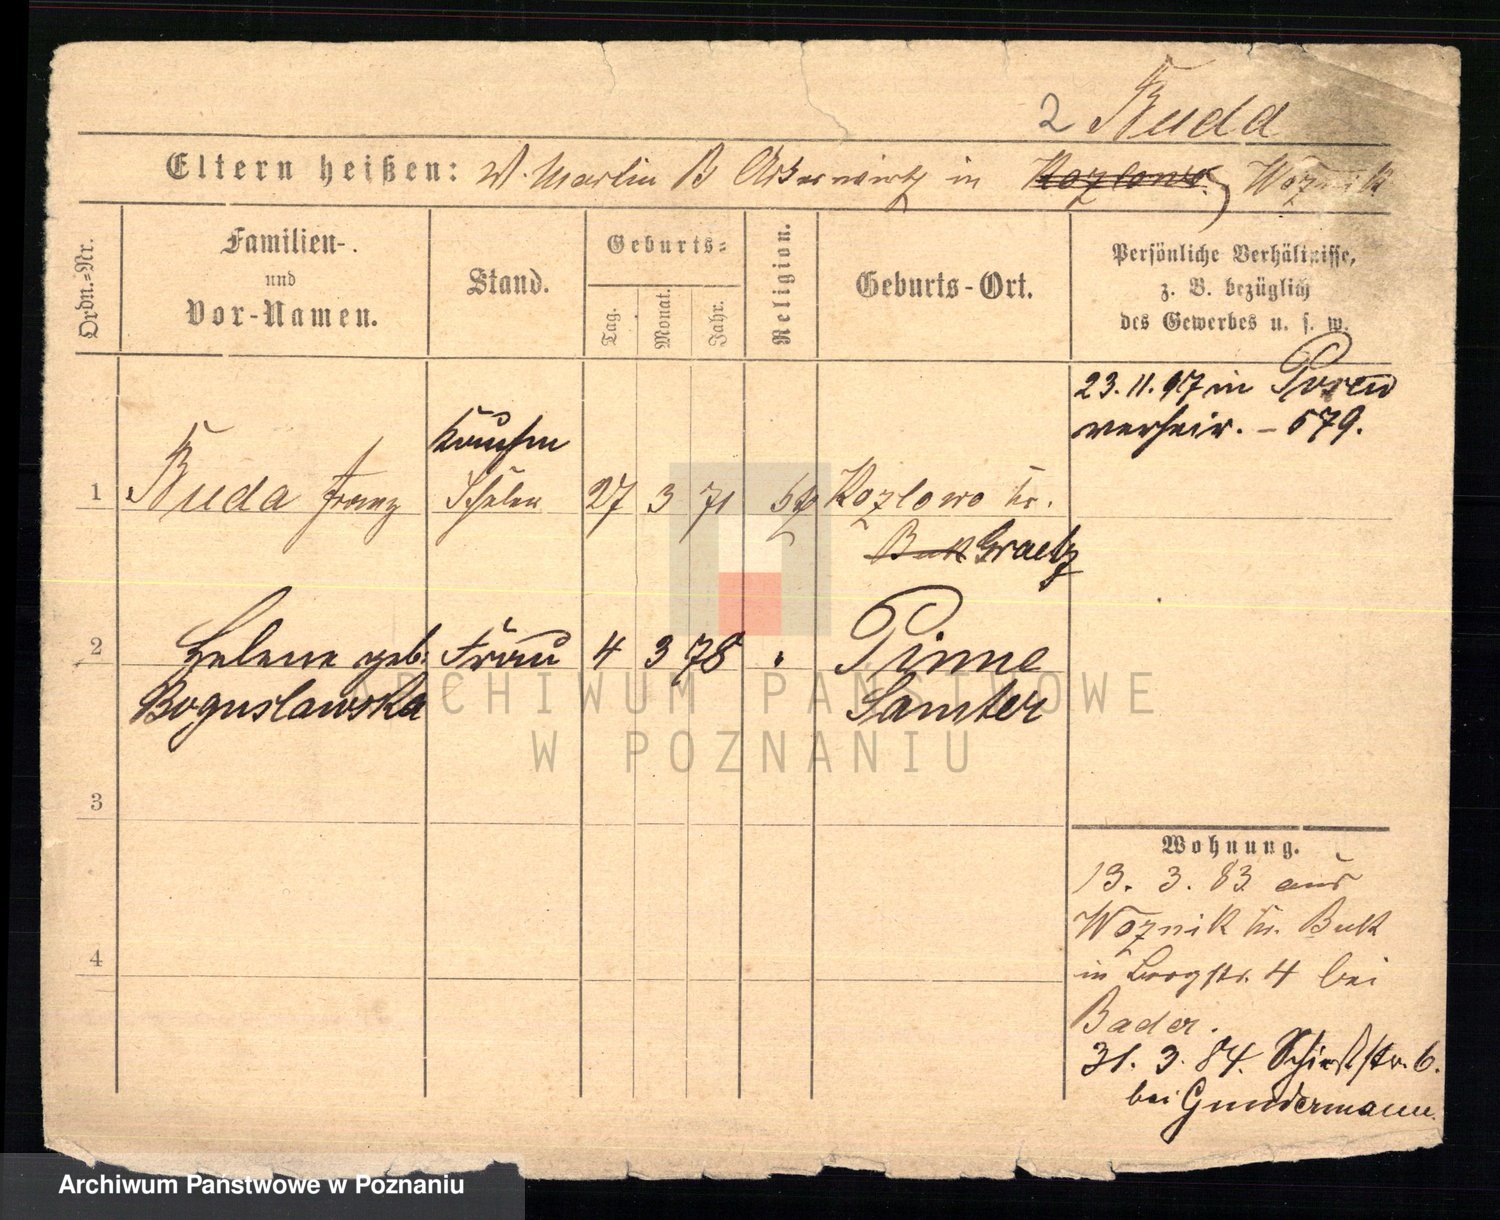 2 Ruda
Eltern heißen: Martin B Ackerwirth in Kozlowo, Woznik
Ordn.=Nr.
Familien-
und
Vor-Namen.
Stand.
Geburts=
Tag.
Monat.
Jahr.
Religion.
Geburts-Ort.
Persönliche Verhältnisse,
z. B. bezüglich
des Gewerbes u. s. w.
23. 11. 97 in Posen
verheir. – 579.
Kaufm
1 Ruda Franz Schüler 27 3 71 Kozlowo Kr.
Buk Graetz
2 Helene geb. Frau 4 3 78 Pinne
Boguslawska Samter
3
4
Wohnung.
13. 3. 83 aus
Woznik Kr. Buk
in Bergstr. 4 bei
Bader.
31. 3. 84. Schießstr. 6.
bei Gundermann.
ARCHIWUM PAŃSTWOWE
W POZNANIU
Archiwum Państwowe w Poznaniu